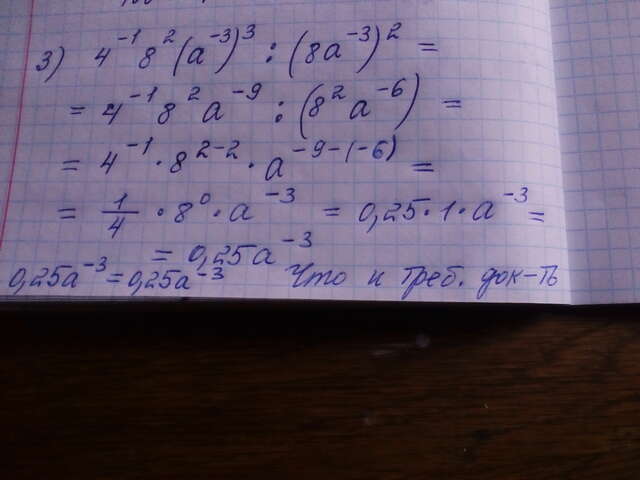 3) 4⁻¹8²(a⁻³)³ : (8a⁻³)² =
= 4⁻¹8²a⁻⁹ : (8²a⁻⁶) =
= 4⁻¹·8²⁻²·a⁻⁹⁻⁽⁻⁶⁾ =
= 1/4·8⁰·a⁻³ = 0,25·1·a⁻³ =
= 0,25a⁻³
0,25a⁻³=0,25a⁻³ Что и треб. док-ть